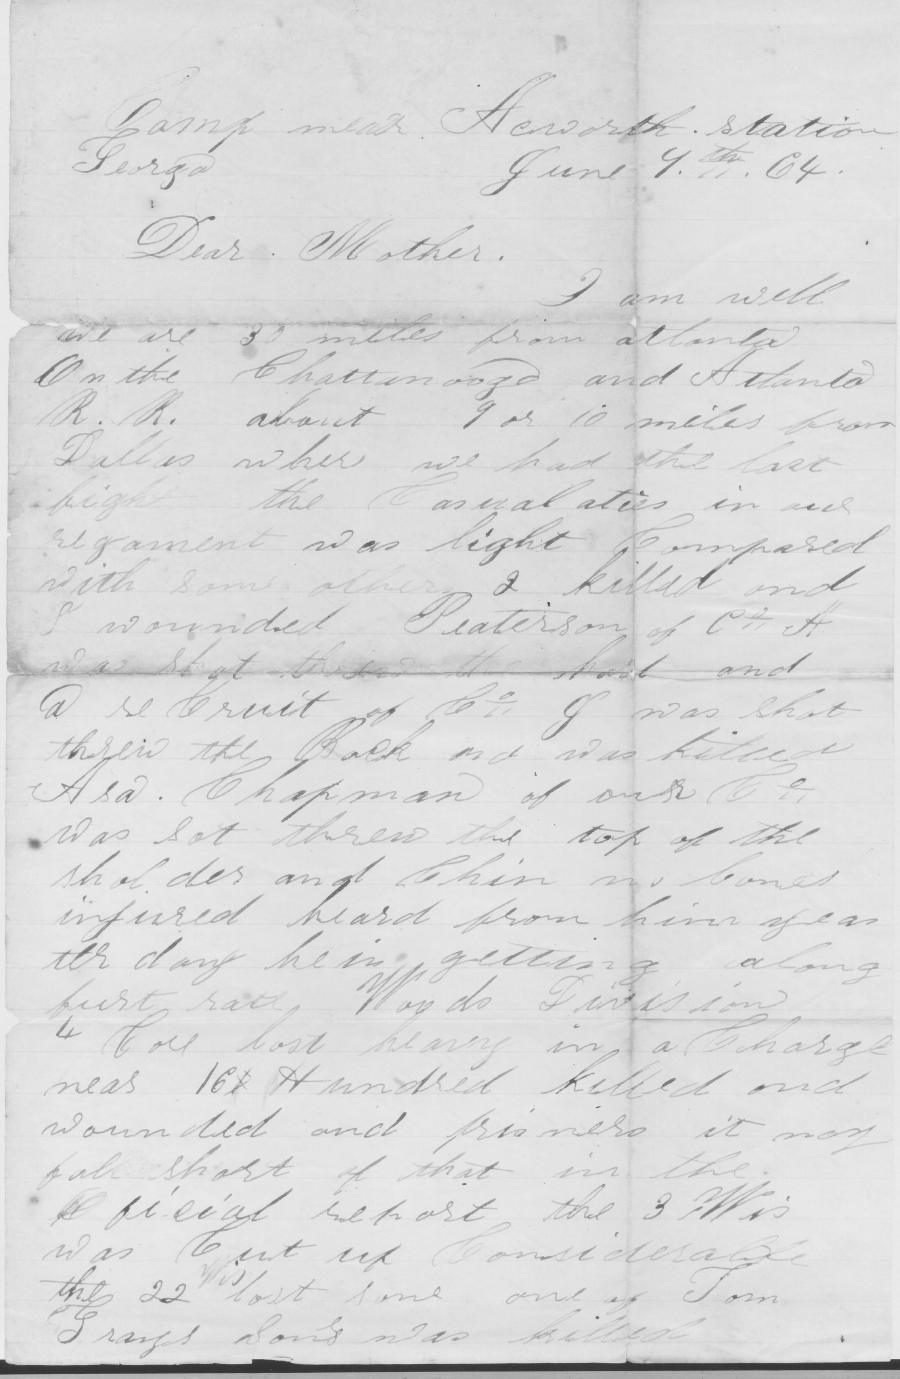 Camp near Acworth station
Georga June 9.th. 64.
Dear. Mother.
I am well
we are 30 miles from atlanta
On the Chattanooga and Atlanta
R. R. about 9 or 10 miles from
Dallas wher we had the last
fight the Casualaties in our
regament was light Compared
with some other 2 killed and
8 wounded Peaterson of Co H
was shot threw the and
a re Cruit of Co G was shot
threw the Back and was killed
Asa. Chapman of our Co
was sot threw the top of the
sholder and Chin no bones
injured heard from him yeas
terday he is getting along
furst rate Woods Division
4 Core lost heavy in a Charge
near 16 Hundred killed and
wounded and prisners it may
fall short of that in the
oficial report the 3 Wis
was Cut up Considerable
the 22 Wis lost some one of Tom
Grays sons was killed